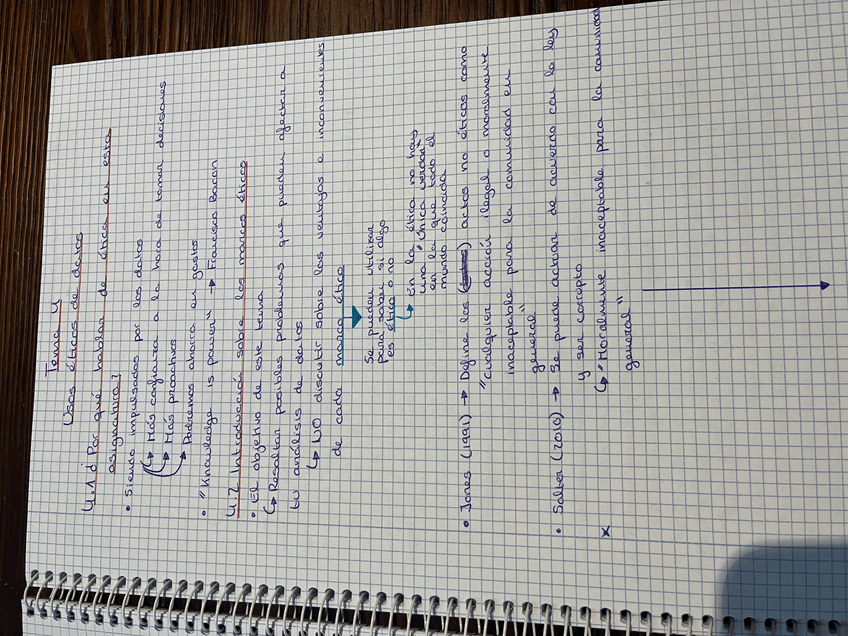 Tema 4
Usos éticos de datos
4.1 ¿Por qué hablar de ética en esta
asignatura?
• Siendo impulsados por los datos
↳ Más confianza a la hora de tomar decisiones
↳ Más proactivos
↳ Podremos ahorrar en gastos
• "Knowledge is power" → Francisco Bacon
4.2 Introducción sobre los marcos éticos
• El objetivo de este tema
↳ Resaltar posibles problemas que pueden afectar a
tu análisis de datos
↳ NO discutir sobre las ventajas e inconvenientes
de cada marco ético
Se pueden utilizar
para saber si algo
es ético o no
↳ En la ética no hay
una "única verdad"
en la que todo el
mundo coincida
• Jones (1991) → Define los actos no éticos como
"cualquier acción ilegal o moralmente
inaceptable para la comunidad en
general"
• Salter (2010) → Se puede actuar de acuerdo con la ley
y ser corrupto
x ↳ "Moralmente inaceptable para la comunidad
general"